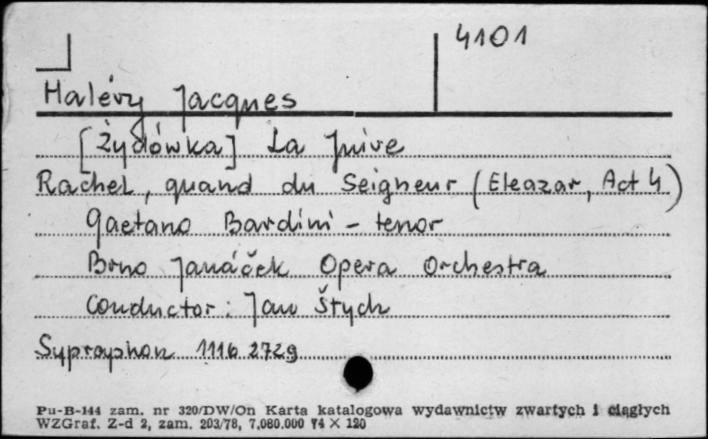 4101
Halévy Jacques
[Żydówka] La Juive
Rachel, quand du Seigneur (Eleazar, Act 4)
Gaetano Bardini - tenor
Brno Janáček Opera Orchestra
Conductor: Jan Štych
Syprayphon 1116 2729
Pu-B-144 zam. nr 320/DW/On Karta katalogowa wydawnictw zwartych i ciągłych
WZGraf. Z-d 2, zam. 203/78, 7.080.000 74 X 120